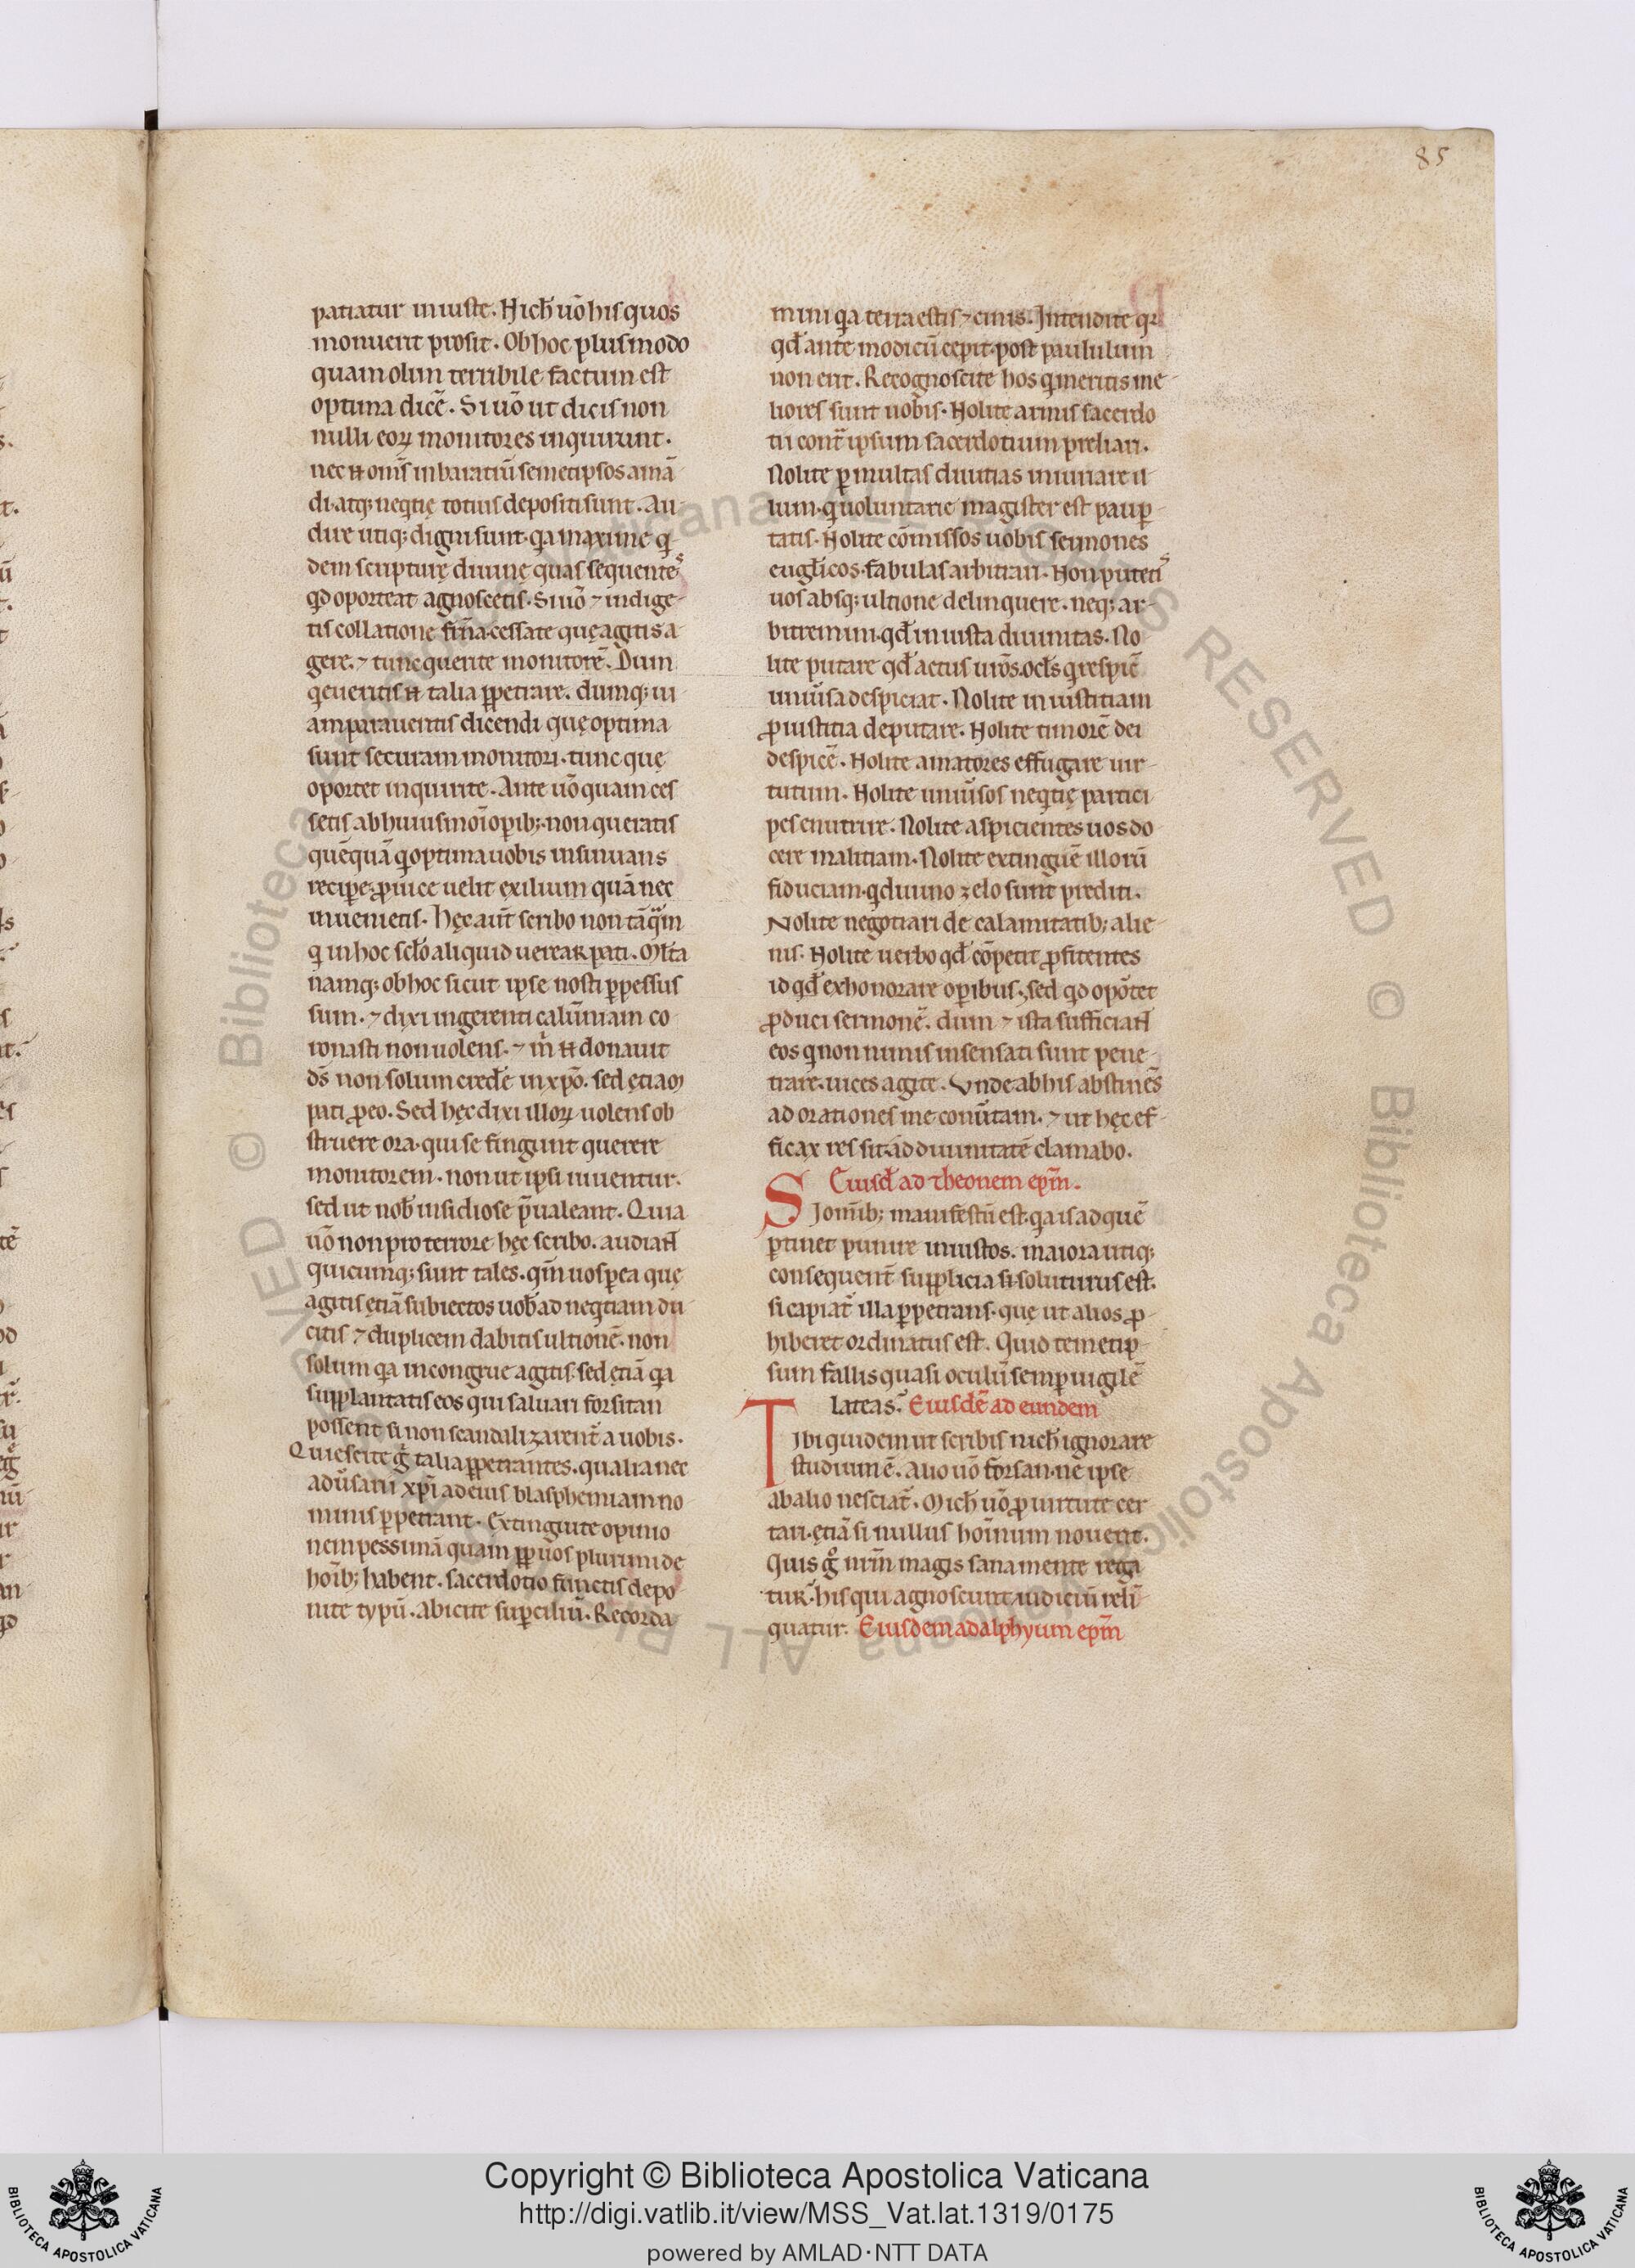 85
patiatur iniuste. Nich̄ uō his quos
monuerit prosit. Ob hoc plus modo
quam olim terribile factum est
optima dicē. Si uō ut dicis non
nulli eoꝝ monitores inquirunt.
nec
di. atq; neqtię totius depositi sunt. Au-
dire utiq; digni sunt. qa maxime q-
dem scripturę diuinę quas sequentes
qd oporteat agnoscetis. Si uō ⁊ indige-
tis collatione
gere. ⁊ tunc querite monitorē. Dum
talia ꝑpetrare. dumq; ui
am paraueritis dicendi quę optima
sunt securam monitori. tunc quę
oportet inquirite. Ante uō quam ces
setis ab huiusmōi opib;. non queratis
quēquā q optima uobis insinuans
recipe ꝓ uice uelit exilium quā nec
inuenietis. Hęc aut̄ scribo non tāq̄m
q in hoc sc̄lo aliquid uerear pati. Mlta
namq; ob hoc sicut ipse nosti ꝑpessus
sum. ⁊ dixi ingerenti calūniam co
ronasti non uolens. ⁊ m̄ donauit
dn̄s non solum credē in xp̄o. sed etiam
pati ꝓ eo. Sed hęc dixi illoꝝ uolens ob
struere ora. qui se fingunt querere
monitorem. non ut ipsi iuuentur.
sed ut nob̄ insidiose p̄ualeant. Quia
uō non pro terrore hęc scribo. audiant
quicumq; sunt tales. qm̄ uos ꝑ ea quę
agitis etiā subiectos uob̄ ad neqtiam du
citis ⁊ duplicem dabitis ultionē. non
solum qa incongrue agitis. sed etiā qa
supplantatis eos qui saluari forsitan
possent si non scandalizarent̄ a uobis.
Quiescite g̊ talia ꝑpetrantes. qualia nec
adūsarii xp̄i ad eius blasphemiam no
minis ꝑpetrant. Extinguite opinio
nem pessimā quam ꝑp uos plurimi de
hoīb; habent. sacerdotio functis depo
nite typū. Abicite supciliū. Recorda
mini qa terra estis ⁊ cinis. Intendite qa
qd̄ ante modicū cepit. post paululum
non erit. Recognoscite hos q meritis me-
liores sunt uobis. Nolite armis sacerdo
tii cont̄ ipsum sacerdotium preliari.
Nolite ꝑ multas diuitias iniuriare il-
lum. q uoluntarie magister est paup-
tatis. Nolite cōmissos uobis sermones
eugl̄icos. fabulas arbitrari. Non putetis
uos absq; ultione delinquere. neq; ar-
bitremini. qd̄ iniusta diuinitas. No
lite putare qd̄ actus ur̄os. ocl̄s q respicē
uniūsa despiciat. Nolite iniustitiam
ꝓ iustitia deputare. Nolite timorē dei
despicē. Nolite amatores effugare uir-
tutum. Nolite uniūsos neqtię partici
pes enutrire. Nolite aspicientes uos do-
cere malitiam. Nolite extinguē illorū
fiduciam. q diuino zelo sunt prediti.
Nolite negotiari de calamitatib; alie-
nis. Nolite uerbo qd̄ cōpetit ꝓfitentes
id qd̄ exhonorare opibus. sed qd opōtet
ꝓduci sermonē. dum ⁊ ista sufficiant
eos q non nimis insensati sunt pene-
trare. uices agite. Unde ab his abstinēs
ad orationes me conūtam. ⁊ ut hęc ef-
ficax res sit. ad diuinitatē clamabo.
Eiusd̄ ad theonem ep̄m.
Si om̄ib; manifestū est. qa is ad quē
ptinet punire iniustos. maiora utiq;
consequent̄ supplicia si soluturus est.
si capiat̄ illa ꝑpetrans. quę ut alios ꝓ-
hiberet ordinatus est. Quid temetip-
sum fallis quasi oculū semp uigilē
lateas. Eiusdē ad eundem
Tibi quidem ut scribis nich̄ ignorare
studium ē. Alio uō forsan. ne ipse
ab alio nesciat̄. Mich̄ uō ꝓ uirtute cer
tari. etiā si nullus hoīnum nouerit.
Quis g̊ nr̄m magis sana mente rega
tur. his qui agnoscunt iudiciū reli-
quatur. Eiusdem ad alphyum ep̄m
Copyright © Biblioteca Apostolica Vaticana
http://digi.vatlib.it/view/MSS_Vat.lat.1319/0175
powered by AMLAD·NTT DATA
BIBLIOTECA APOSTOLICA VATICANA
BIBLIOTECA APOSTOLICA VATICANA